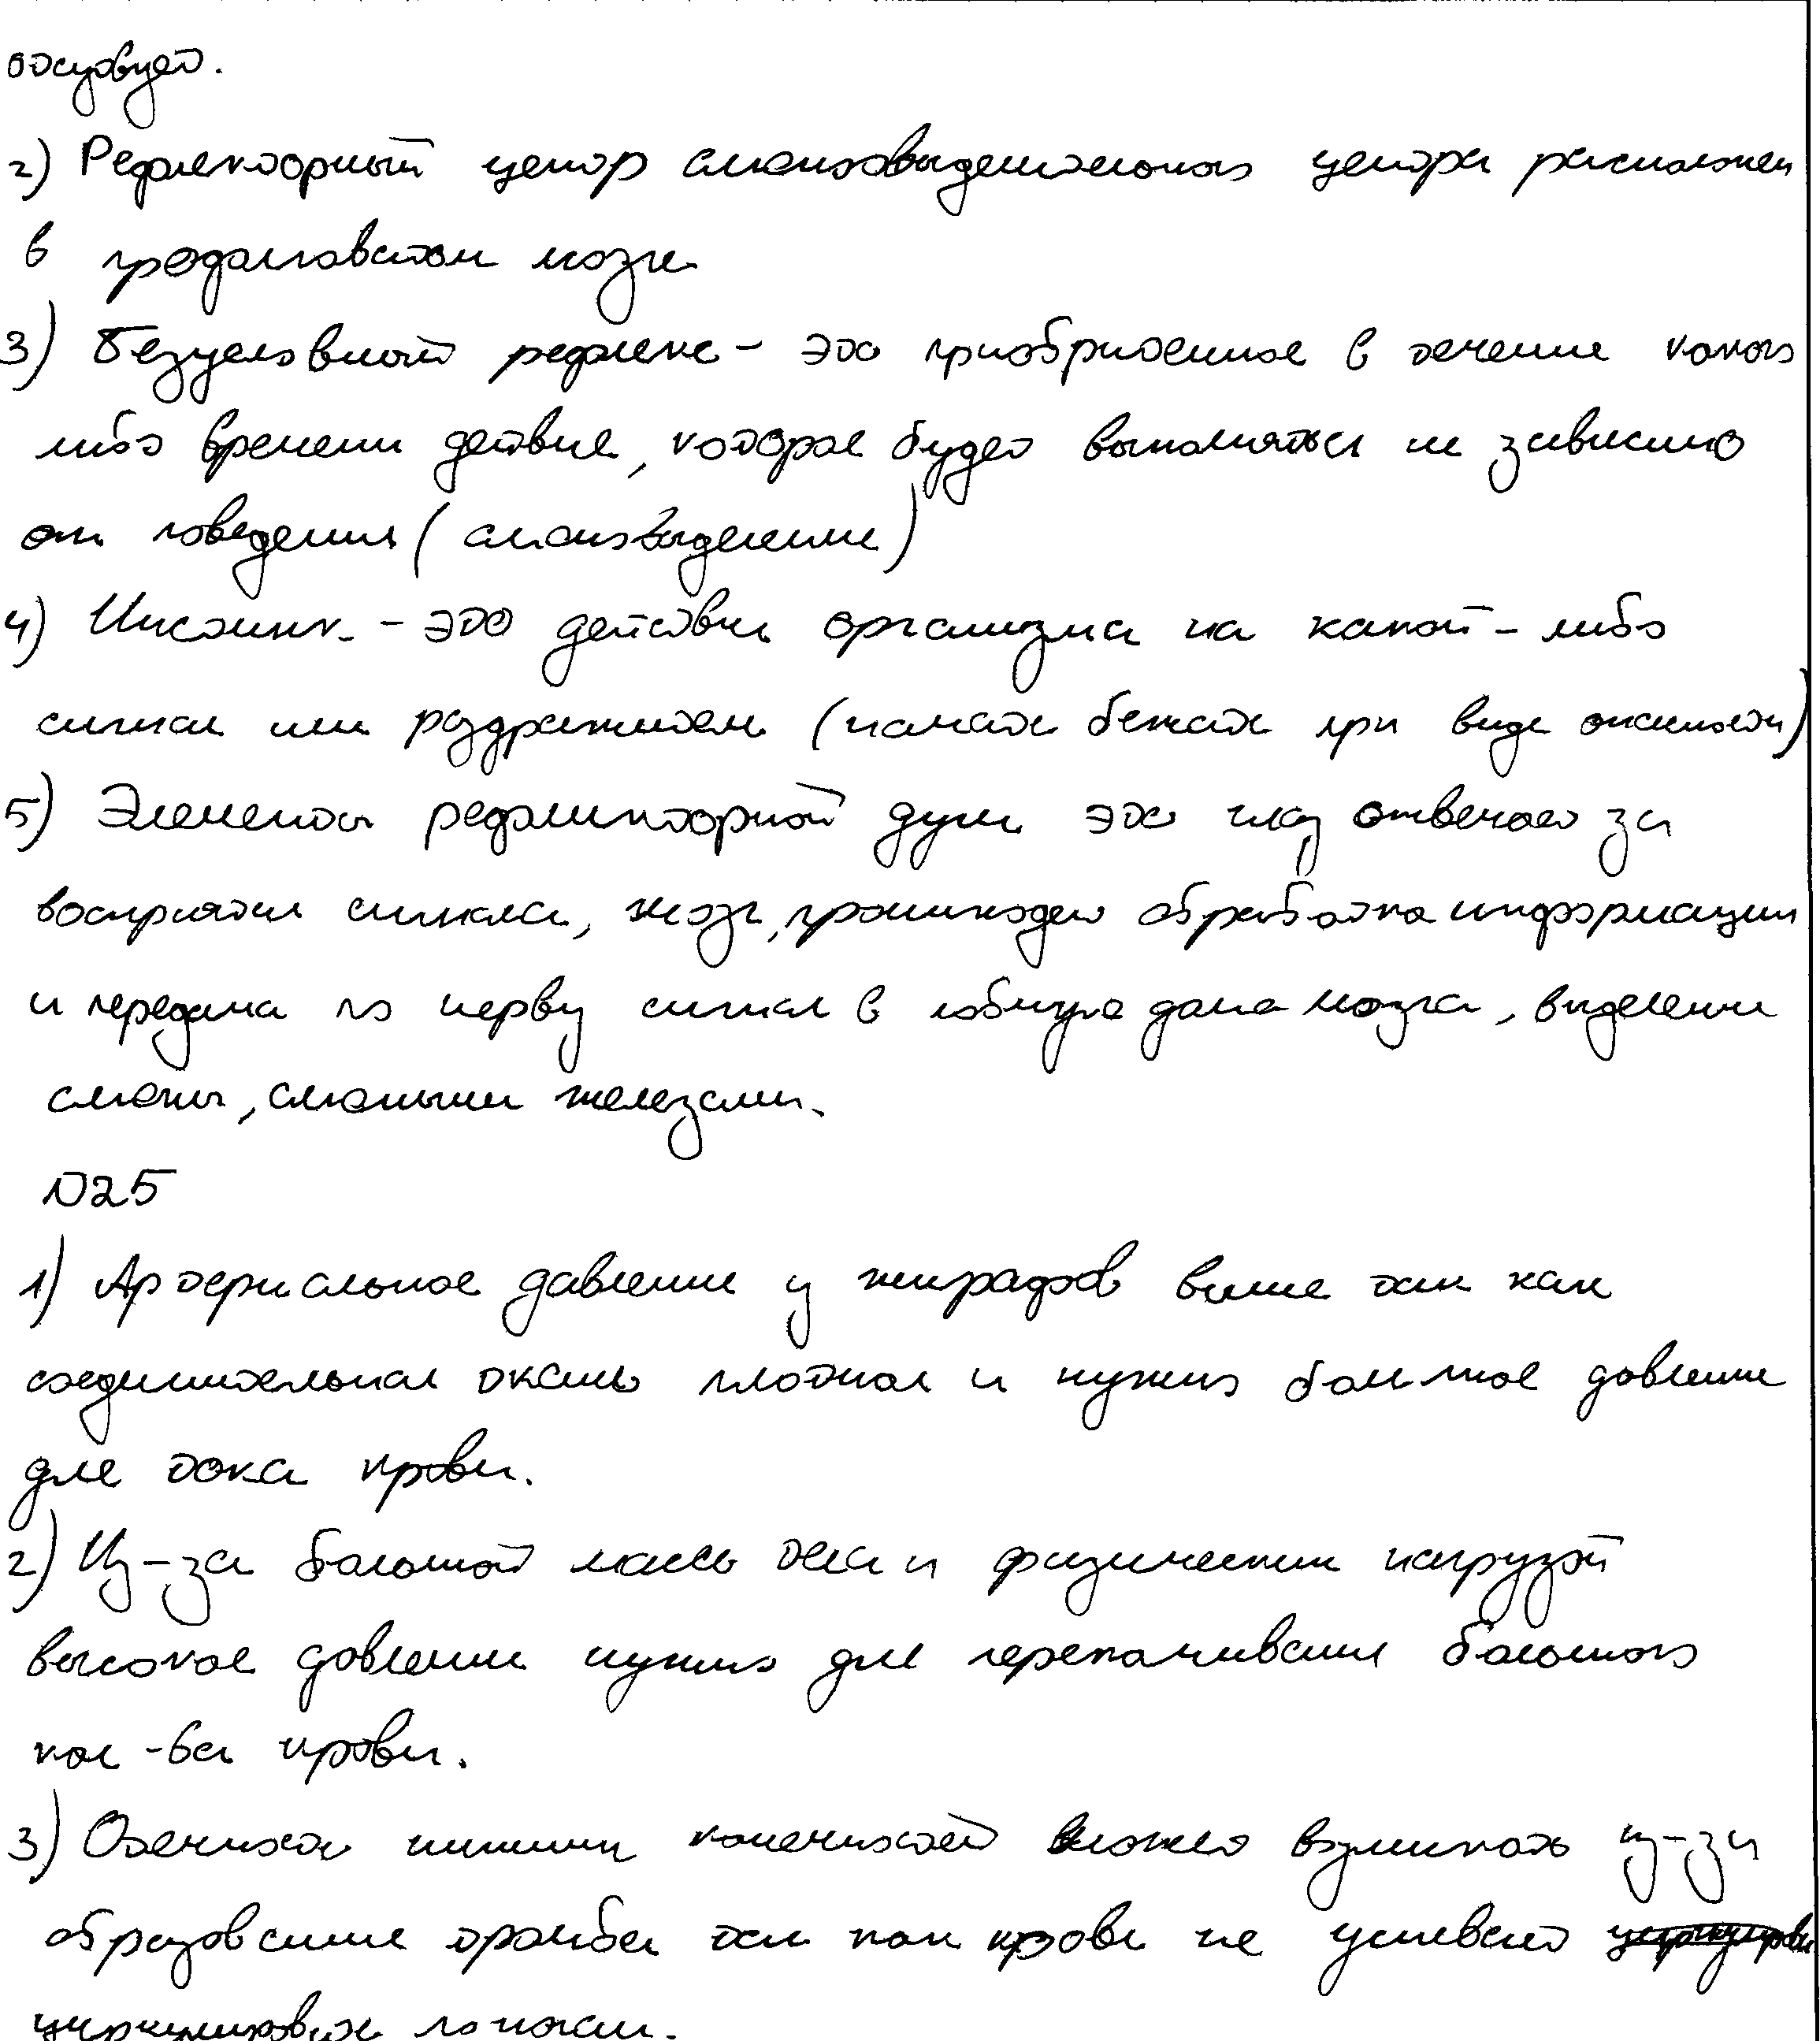 отсутствует.
2) Рефлекторный центр слюновыделительного центра расположен
в продолговатом мозге
3) Безусловный рефлекс - это приобритенное в течение какого
либо времени действие, которое будет выполняться не зависимо
от поведения (слюновыделение)
4) Инстинк. - это действие организма на какой-либо
сигнал или раздражитель (начать бежать при виде опасности)
5) Элементы рефлекторной дуги это глаз, отвечает за
восприятие сигнала, мозг, происходит обработка информации
и передача по нерву сигнал в лобную долю мозга, выделение
слюны, слюными железами.
№25
1) Артериальное давление у жирафов выше так как
соединительная ткань плотная и нужно большое давление
для тока крови.
2) Из-за большой массы тела и физических нагрузок
высокое давление нужно для перекачивания большого
кол-ва крови.
3) Отечность нижних конечностей может возникать из-за
образования тромба так как кровь не успевает
циркулировать по ногам.